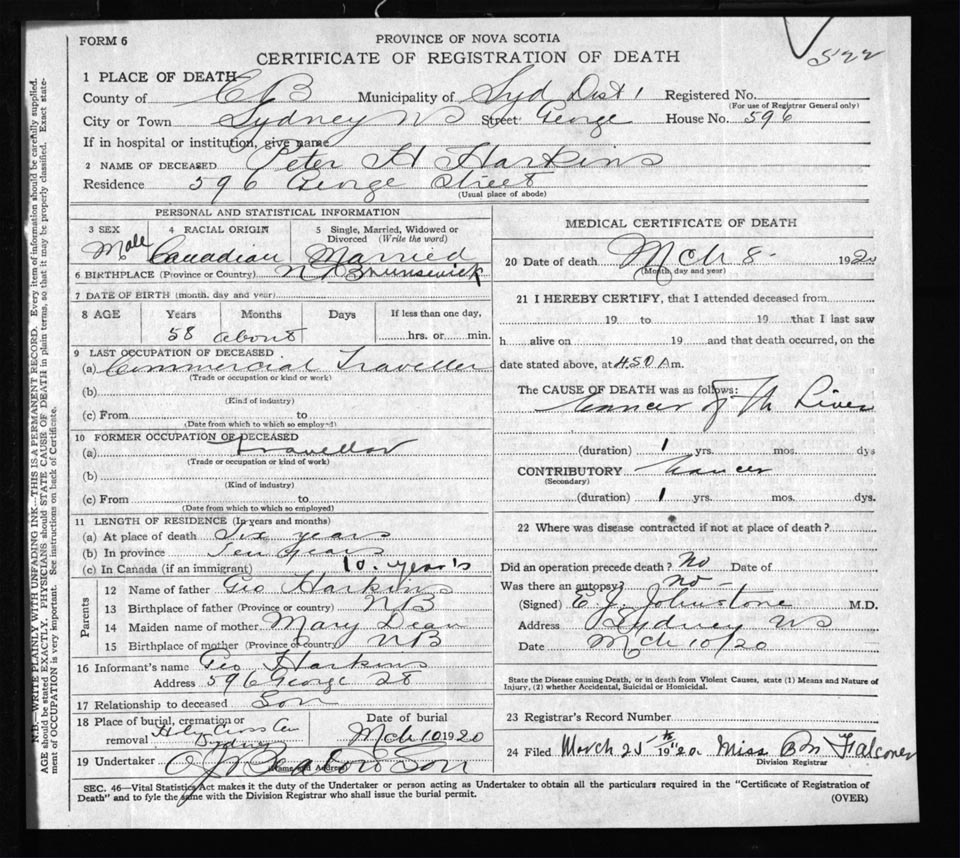 FORM 6
PROVINCE OF NOVA SCOTIA
CERTIFICATE OF REGISTRATION OF DEATH
522
1 PLACE OF DEATH
County of C B Municipality of Syd Dist 1 Registered No.
(For use of Registrar General only)
City or Town Sydney NS Street George House No. 596
If in hospital or institution, give name
2 NAME OF DECEASED Peter H Harkins
Residence 596 George Street
(Usual place of abode)
PERSONAL AND STATISTICAL INFORMATION
3 SEX 4 RACIAL ORIGIN 5 Single, Married, Widowed or Divorced (Write the word)
Male Canadian Married
6 BIRTHPLACE (Province or Country) N Brunswick
7 DATE OF BIRTH (month, day and year)
8 AGE Years Months Days If less than one day,
58 about hrs. or min.
9 LAST OCCUPATION OF DECEASED
(a) Commercial Traveller
(Trade or occupation or kind or work)
(b)
(Kind of industry)
(c) From to
(Date from which to which so employed)
10 FORMER OCCUPATION OF DECEASED
(a) Traveller
(Trade or occupation or kind of work)
(b)
(Kind of industry)
(c) From to
(Date from which to which so employed)
11 LENGTH OF RESIDENCE (In years and months)
(a) At place of death Six years
(b) In province Ten years
(c) In Canada (if an immigrant) 10. year's
Parents
12 Name of father Geo Harkins
13 Birthplace of father (Province or country) NB
14 Maiden name of mother Mary Dean
15 Birthplace of mother (Province or country) NB
16 Informant's name Geo Harkins
Address 596 George
17 Relationship to deceased Son
18 Place of burial, cremation or removal Holy Cross Cem Sydney
Date of burial
Mch 10 1920
19 Undertaker Son
(Name and Address)
MEDICAL CERTIFICATE OF DEATH
20 Date of death Mch 8 - 1920
(Month, day and year)
21 I HEREBY CERTIFY, that I attended deceased from
19 to 19 that I last saw
h alive on 19 and that death occurred, on the
date stated above, at 4.50 A m.
The CAUSE OF DEATH was as follows:
Cancer of Th Liver
(duration) 1 yrs. mos. dys
CONTRIBUTORY Cancer
(Secondary)
(duration) 1 yrs. mos. dys.
22 Where was disease contracted if not at place of death?
Did an operation precede death? No Date of
Was there an autopsy? No -
(Signed) E. J. Johnstone M.D.
Address Sydney NS
Date Mch 10/20
State the Disease causing Death, or in death from Violent Causes, state (1) Means and Nature of
Injury, (2) whether Accidental, Suicidal or Homicidal.
23 Registrar's Record Number
24 Filed March 25th 1920 Miss B M Falconer
Division Registrar
SEC. 46—Vital Statistics Act makes it the duty of the Undertaker or person acting as Undertaker to obtain all the particulars required in the "Certificate of Registration of
Death" and to fyle the same with the Division Registrar who shall issue the burial permit.
(OVER)
N.B.—WRITE PLAINLY WITH UNFADING INK—THIS IS A PERMANENT RECORD. Every item of information should be carefully supplied.
AGE should be stated EXACTLY. PHYSICIANS should STATE CAUSE OF DEATH in plain terms, so that it may be properly classified. Exact state-
ment of OCCUPATION is very important. See instructions on back of Certificate.